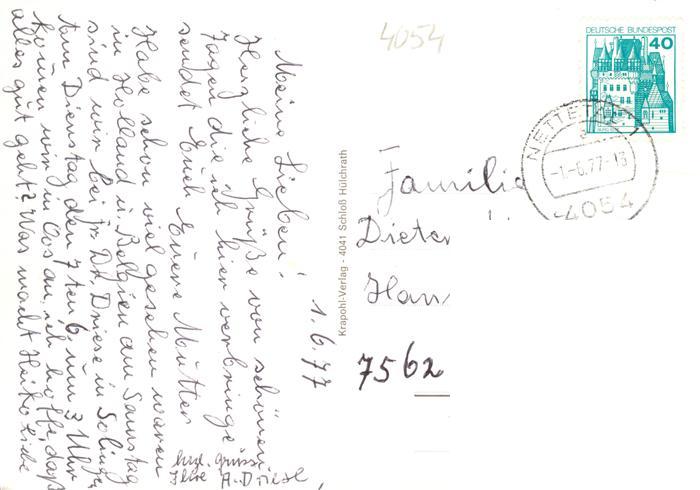 4054
DEUTSCHE BUNDESPOST
40
NETTETAL 1
-1.-6.77-13
4054
Familie
Dieter
7562
Krapohl-Verlag - 4041 Schloß Hülchrath
1.6.77
Meine Lieben!
Herzliche Grüße von schönen
Tagen die ich hier verbringe
sendet Euch Euere Mutter
Habe schon viel gesehen waren
in Holland u. Belgien am Samstag
sind wir bei Fr. Dr. Driese in Solingen
Am Dienstag den 7ten 6. um 3 Uhr
kommen wir in Oos an, ich hoffe, daß
alles gut geht? Was macht Heiko
herzl. Grüsse
Ihre A. Driese